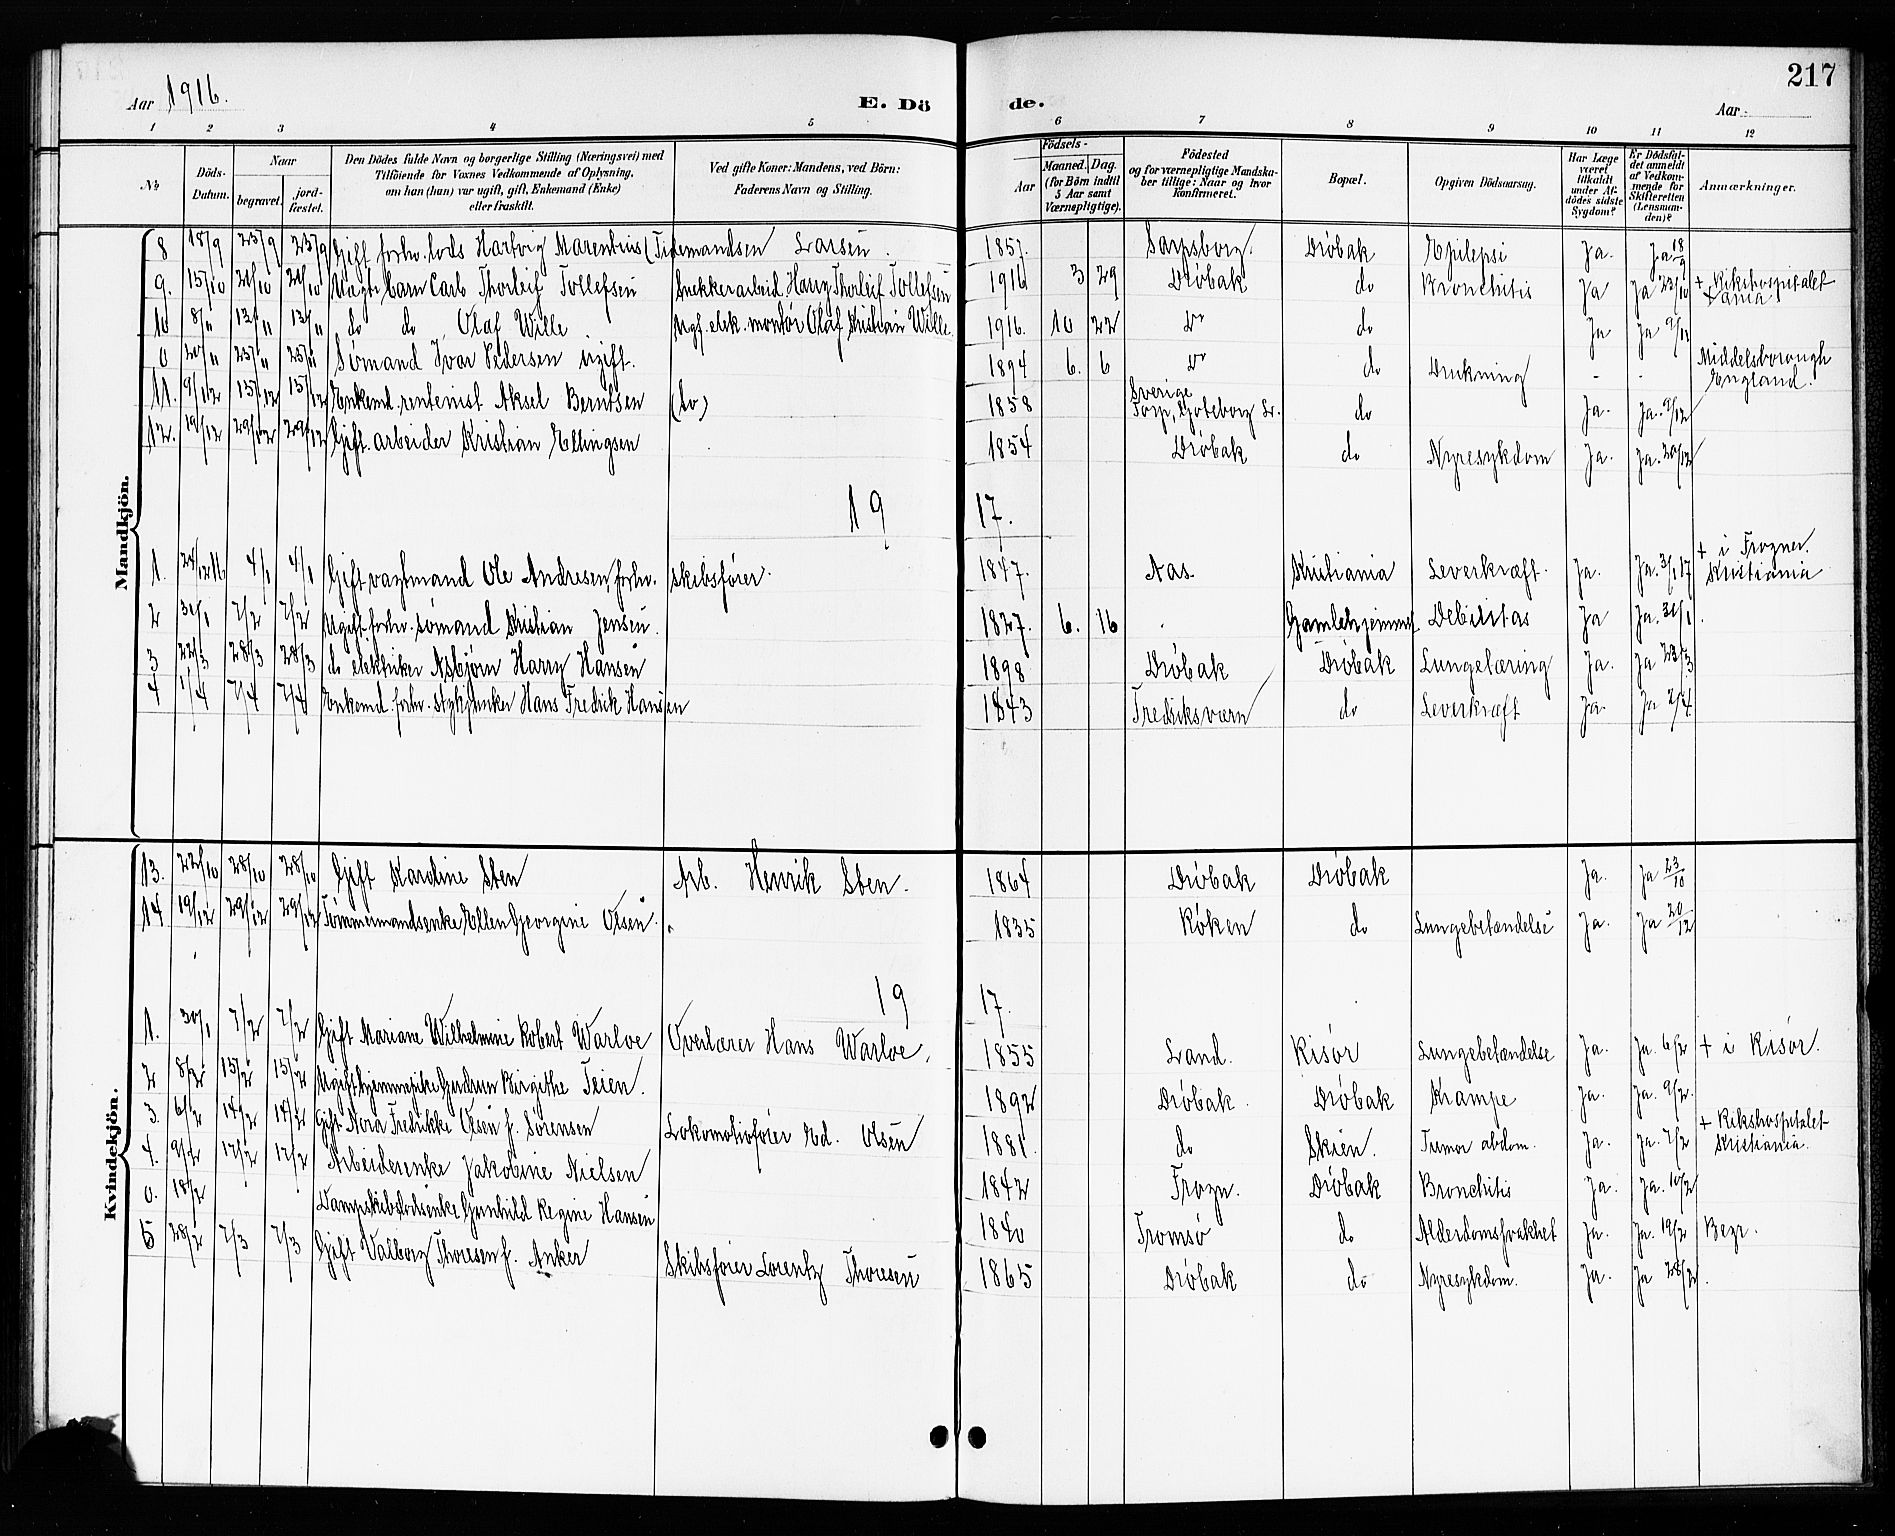 217
Aar 1916.
E. Dö
de.
Aar
1 2 3 4 5 6 7 8 9 10 11 12
No
Döds-Datum.
Naar
begravet.
jord-fæstet.
Den Dödes fulde Navn og borgerlige Stilling (Næringsvei) med Tilföiende for Voxnes Vedkommende af Oplysning, om han (hun) var ugift, gift, Enkemand (Enke) eller fraskilt.
Ved gifte Koner: Mandens, ved Börn: Faderens Navn og Stilling.
Födsels-
Aar
Maaned.
Dag.
(for Börn indtil 5 Aar samt Værnepligtige).
Födested og for værnepligtige Mandska-ber tillige: Naar og hvor Konfirmeret.
Bopæl.
Opgiven Dödsaarsag.
Har Læge været tilkaldt under Af-dödes sidste Sygdom?
Er Dödsfal-det anmeldt af Vedkom-mende for Skifteretten (Lensman-den)?
Anmærkninger.
Mandkjön.
8 18/9 23/9 23/9 Gift forhv. lods Hartvig Marentius (Tidemandsen Larsen. 1857. Sarpsborg. Drøbak Epilepsi Ja. Ja 18/9
9. 15/10 21/10 21/10 barn Carl Thorleif Tollefsen Snekkerarbeid. Harry Thorleif Tollefsen 1916 3 29 Drøbak do Bronchitis Ja Ja 23/10 + Rikshospitalet Kr.ania
10 8/11 13/11 13/11 do do Olaf Wille Ugf. elek. montør Olaf Kristian Wille. 1916. 10 22 do Ja Ja 9/11
0 20/11 25/11 25/11 Sømand Ivar Pedersen ugift. 1894 6. 6 do Drukning - - Middelsborough England.
11. 9/12 15/12 15/12 Enkemd. rentenist Aksel Berntsen (do) 1858 Sverige Torp, Gøteborg L. do Ja. Ja. 9/12
12. 19/12 29/12 29/12 Gift. arbeider Kristian Ellingsen 1854 Drøbak do Nyresykdom Ja. Ja. 20/12
1917.
1. 24/12 16 4/1 4/1 Gift vagtmand Ole Andresen, forhv. skibsfører. 1847. Aas. Kristiania Leverkræft. Ja. Ja. 3/1 17 + i Frogner. Kristiania
2 31/1 7/2 7/2 Ugift forhv. sømand Kristian Jensen. 1827. 6. 16 Gamlehjemmet Debilitas Ja Ja. 31/1
3 22/3 28/3 28/3 do elektriker Asbjørn Harry Hansen 1898 Drøbak Drøbak Lungetæring Ja. Ja 23/3
4 1/4 7/4 7/4 Enkemd. forhv. stykjunker Hans Fredrik Hansen 1843 Fredriksværn do Leverkræft Ja. Ja 2/4
Kvindekjön.
13. 22/10 28/10 28/10 Gift Karoline Sten Arb. Henrik Sten. 1864 Drøbak Drøbak Ja. Ja 23/10
14 19/12 29/12 29/12 Tømmermandsenke Ellen Georgine Olsen. 1835 Røken do Lungebetændelse Ja. Ja 20/12
1917.
1. 30/1 7/2 7/2 Gift Mariane Wilhelmine Robert Warloe Overlærer Hans Warloe. 1855 Land. Risør Lungebetændelse Ja. Ja. 6/2 + i Risør.
2 8/2 15/2 15/2 Ugift hjemmepike Gudrun Birgithe Teien. 1892 Drøbak. Drøbak Krampe Ja. Ja. 9/2.
3. 6/2 14/2 14/2 Gift Nora Fredrikke Olsen f. Sørensen Lokomotivfører Ed. Olsen 1881. do Skien. Tumor abdom. Ja. Ja. 7/2 + Rikshospitalet Kristiania.
4. 9/2 17/2 17/2 Arbeiderenke Jakobine Nielsen 1842 Frogn. Drøbak Bronchitis Ja. Ja. 10/2
0. 18/2 Dampskibslodsenke Gunhild Regine Hansen 1840 Tromsø do Alderdomssvakhet Ja. Ja. 19/2 Begr.
5 28/2 7/3 7/3 Gift Valborg Thoresen f. Anker Skibsfører Lorentz Thoresen 1865 Drøbak do Nyresykdom. Ja. Ja 28/2